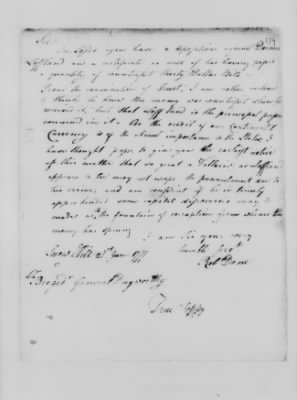 Sir
Inclosed you have a deposition against Dorman
Lofland and a certificate in case of his having passed
a quantity of counterfeit thirty Dollar Bills
From the examination of I am rather inclined
to think he knew the money was counterfeit when he
received it, but that Lofland is the principal person
concerned in it. As the credit of our Continental
Currency is of the utmost importance to the States, I
have thought proper to give you the earliest notice
of this matter that so great a Villain as Lofland
appears to be may not escape the punishment due to
his crime, and am confident if he is timely
apprehended some capital discoveries may be
made as to the fountain of corruption from whence the
money has sprung
I am Sir your very
humble
Snow Hill 25th Jan 1777
To Brigdr General Dagworthy
True Coppy